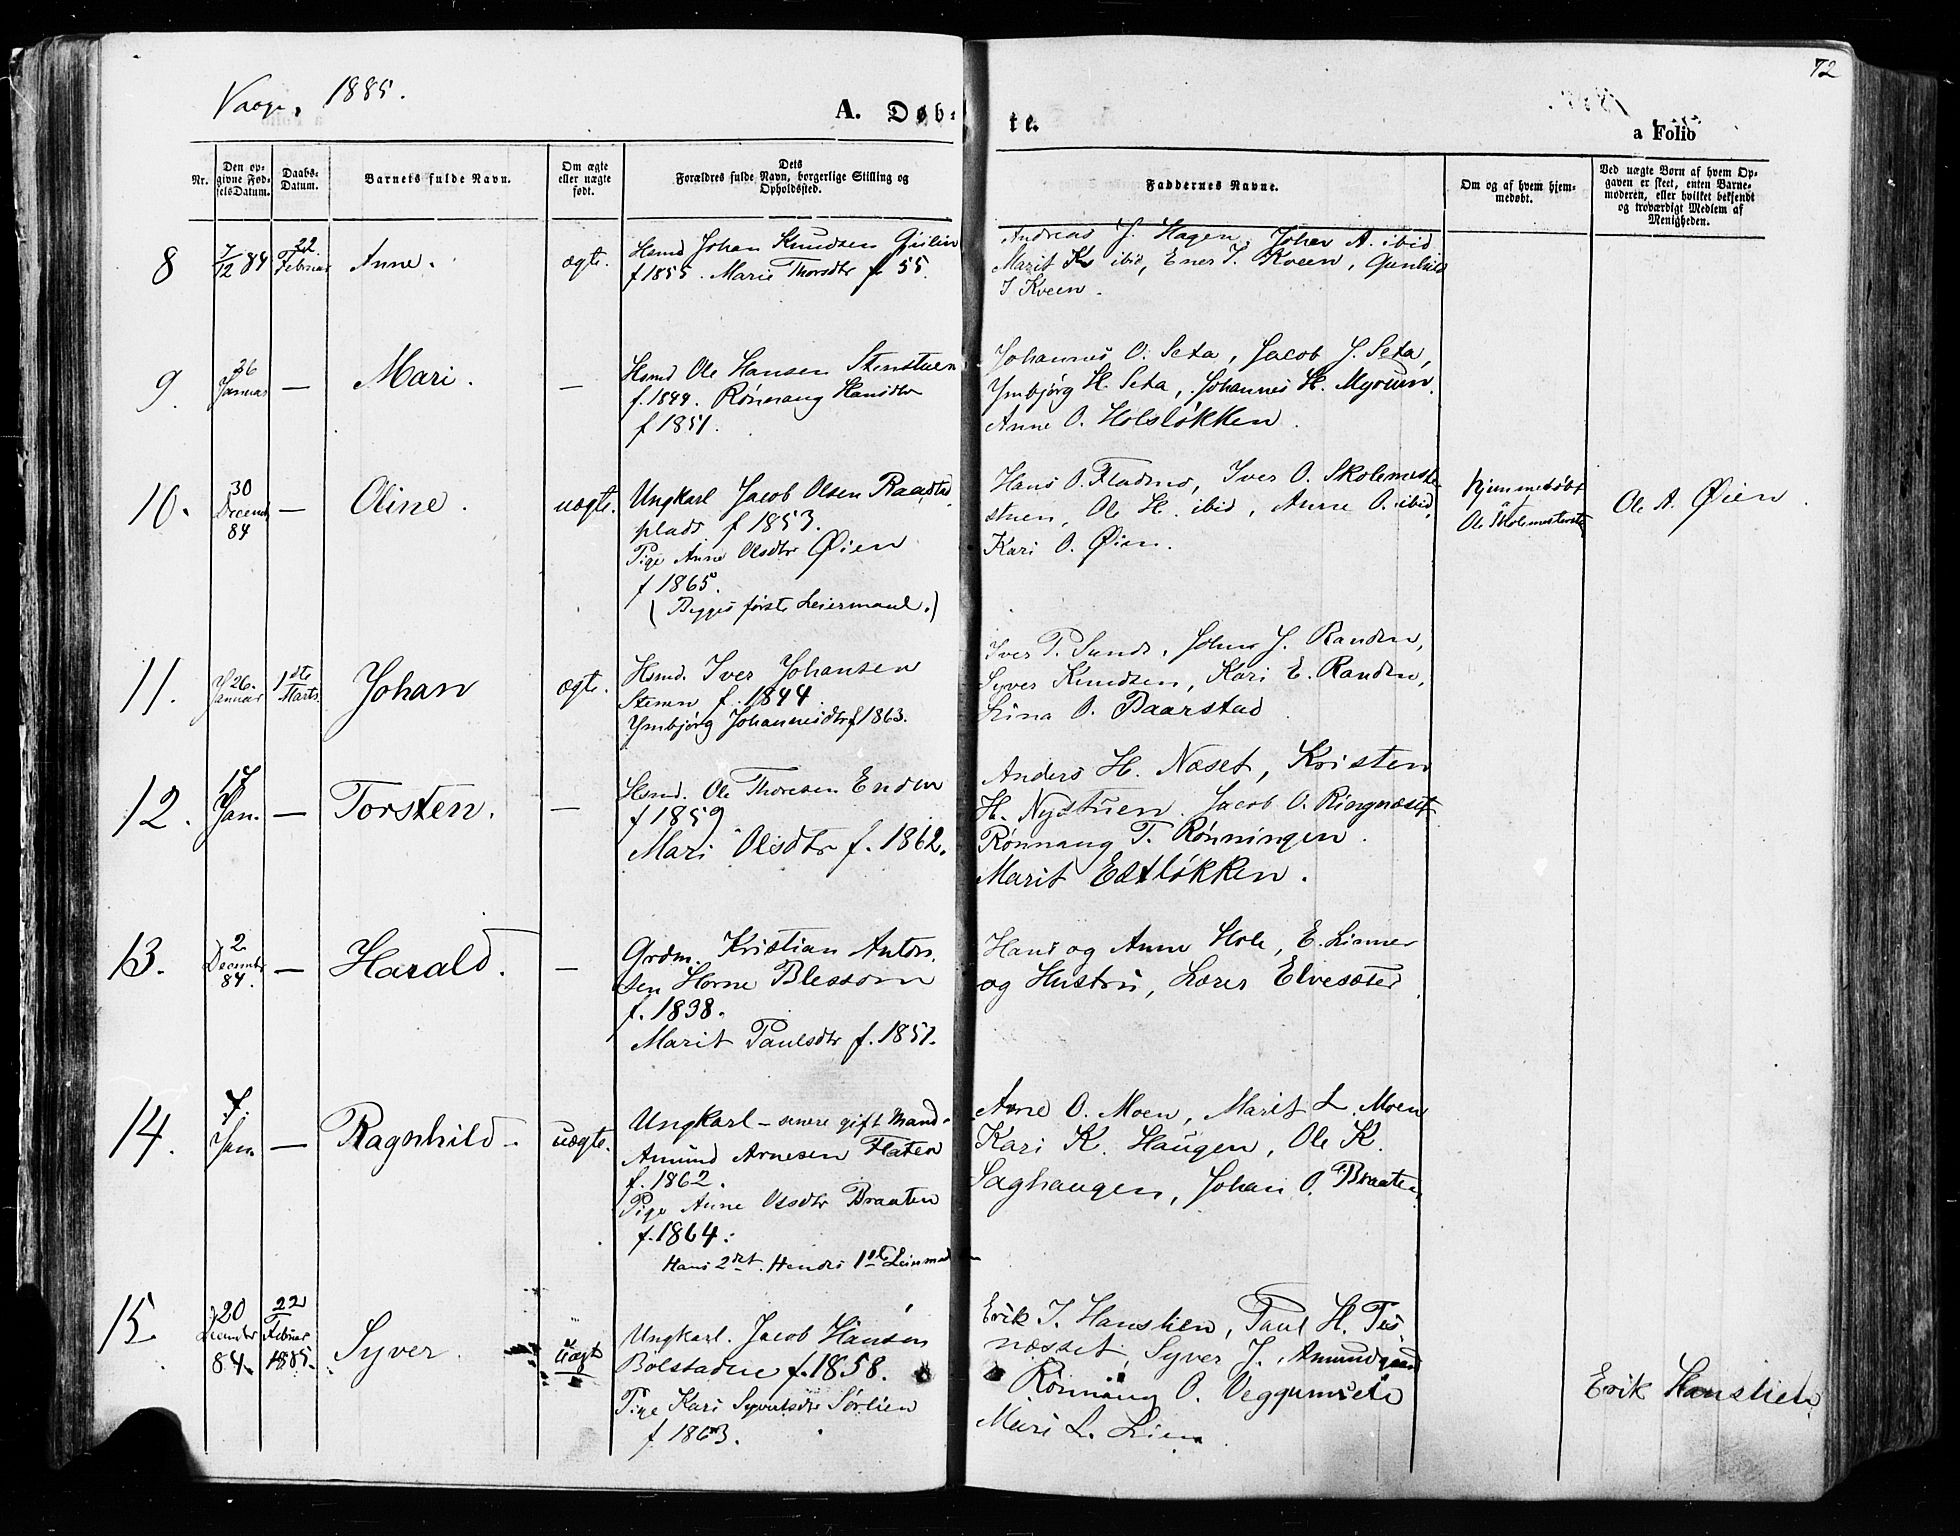 Vaage, 1885.
72
A. Døb-
te.
a Folio
Nr.
Den op-
givne Fød-
selsDatum.
Daabs-
Datum.
Barnets fulde Navn.
Om ægte
eller uægte
født.
Dets
Forældres fulde Navn, borgerlige Stilling og
Opholdssted.
Faddernes Navne.
Om og af hvem hjem-
medøbt.
Ved uægte Børn af hvem Op-
gaven er skeet, enten Barne-
moderen, eller hvilket bekjendt
og troværdigt Medlem af
Menigheden.
8
7/12 84
22
Februar
Anne.
ægte.
Hsmd Johan Knudsen
f 1855. Marie Thorsdtr f 55.
Andreas J. Hagen, Johan A. ibid
Marit K ibid, Ener I. Kveen, Gunhild
I Kveen.
9.
26
Januar
—
Mari.
—
Hsmd Ole Hansen Stenstuen
f. 1844. Rønnaug Hansdtr
f 1851.
Johannes O. Seta, Jacob J. Seta,
Ymbjørg H. Seta, Johannes H. Myrum.
Anne O. Holsløkken.
10.
30
Decemb
84
—
Oline.
uægte.
Ungkarl Jacob Olsen
plads f 1853.
Pige Anne Olsdtr Øien
f 1865.
(Begges første Leiermaal.)
Hans O. Fladmo, Iver O. Skolemester
stuen, Ole H. ibid, Anne O. ibid,
Kari O. Øien.
hjemmedøbt
Ole Skolemesterst
Ole A. Øien.
11.
26.
Januar
1ste
Marts
Johan
ægte.
Hsmd. Iver Johansen
f. 1844
Ymbjørg Johannesdtr f 1863.
Iver P. Sunde, Johns J. Randen,
Syver Knudsen, Kari E. Randen,
Lina O. Baarstad
12.
17
Jan.
—
Torsten.
—
Hsmd. Ole Thoresen Enden
f 1859
Mari Olsdtr f. 1862.
Anders H. Næset, Kristen
H. Nystuen Jacob O. Ringnæset
Rønnaug T. Rønningen.
Marit Edtløkken.
13.
2
Decembr
84.
—
Harald.
—
Grdm. Kristian Anton-
sen Horne Blessom
f. 1838.
Marit Paulsdtr f. 1851.
Hans og Anne Hole, E. Linner
og Hustru, Lærer Elvesæter
14.
7.
Jan.
—
Ragnhild
uægte.
Ungkarl – senere gift Mand –
Amund Arnesen Flaten
f. 1862.
Pige Anne Olsdtr Braaten
f. 1864.
Hans 2det. Hendes 1ste Leiermaal
Arne O. Moen, Marit L. Moen
Kari K. Haugen, Ole K.
Saghaugen, Johan O. Braaten,
15.
20
Decembr
84.
22
Februar
1885.
Syver.
uægte
Ungkarl. Jacob Hansen
Bolstadeie f. 1858.
Pige Kari Syvertsdtr Sørlien
f 1863.
Erik I. Hanslien, Paul H. Tes
næsset, Syver J. Amundgaard
Rønnaug O. Veggumsete
Mari L. Lien
Erik Hanslien